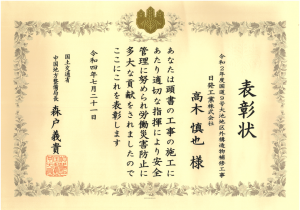 表彰状
令和2年度国道9号大池地区外構造物補修工事
日発工業株式会社
高木慎也様
あなたは頭書の工事の施工に
あたり適切な指揮により安全
管理に努められ労働災害防止に
多大な貢献をされましたので
ここにこれを表彰します
令和四年七月二十一日
国土交通省
中国地方整備局長
森戸義貴